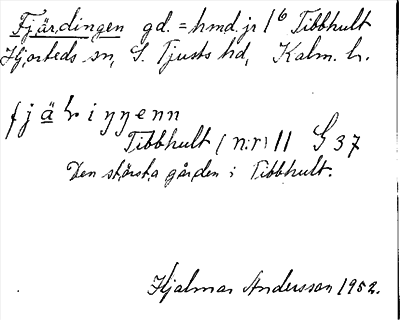 Fjärdingen gd. = hmd. jr 1⁶ Tibbhult
Hjorteds sn, S. Tjusts hd, Kalm. l.
fjäṙiŋŋenn
Tibbhult (n:r) 11 G 37
Den största gården i Tibbhult.
Hjalmar Andersson 1952.